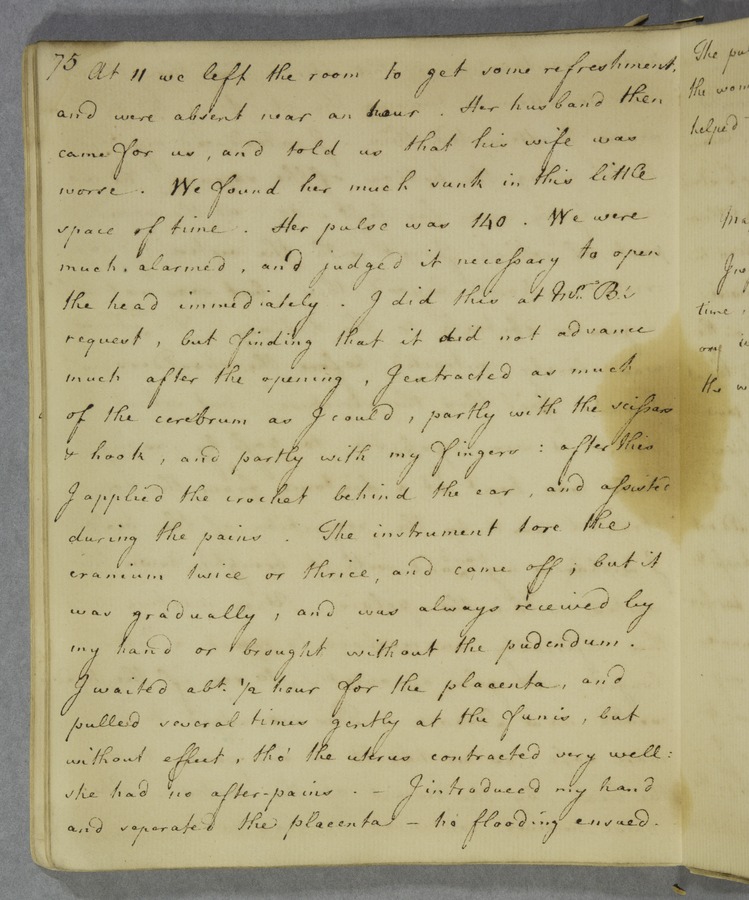 75 At 11 we left the room to get some refreshment,
and were absent near an hour. Her husband then
came for us, and told us that his wife was
worse. We found her much sunk in this little
space of time. Her pulse was 140. We were
much alarmed, and judged it necessary to open
the head immediately. I did this at Mr. B's
request, but finding that it did not advance
much after the opening, I extracted as much
of the cerebrum as I could, partly with the scissars
& hook, and partly with my fingers: after this
I applied the crochet behind the ear, and assisted
during the pains. The instrument tore the
cranium twice or thrice, and came off; but it
was gradually, and was always received by
my hand or brought without the pudendum.
I waited abt. 1/2 hour for the placenta, and
pulled several times gently at the funis, but
without effect, tho' the uterus contracted very well:
she had no after-pains. - I introduced my hand
and separated the placenta - no flooding ensued.
The pu
the wom
helped
Ma
time
the w